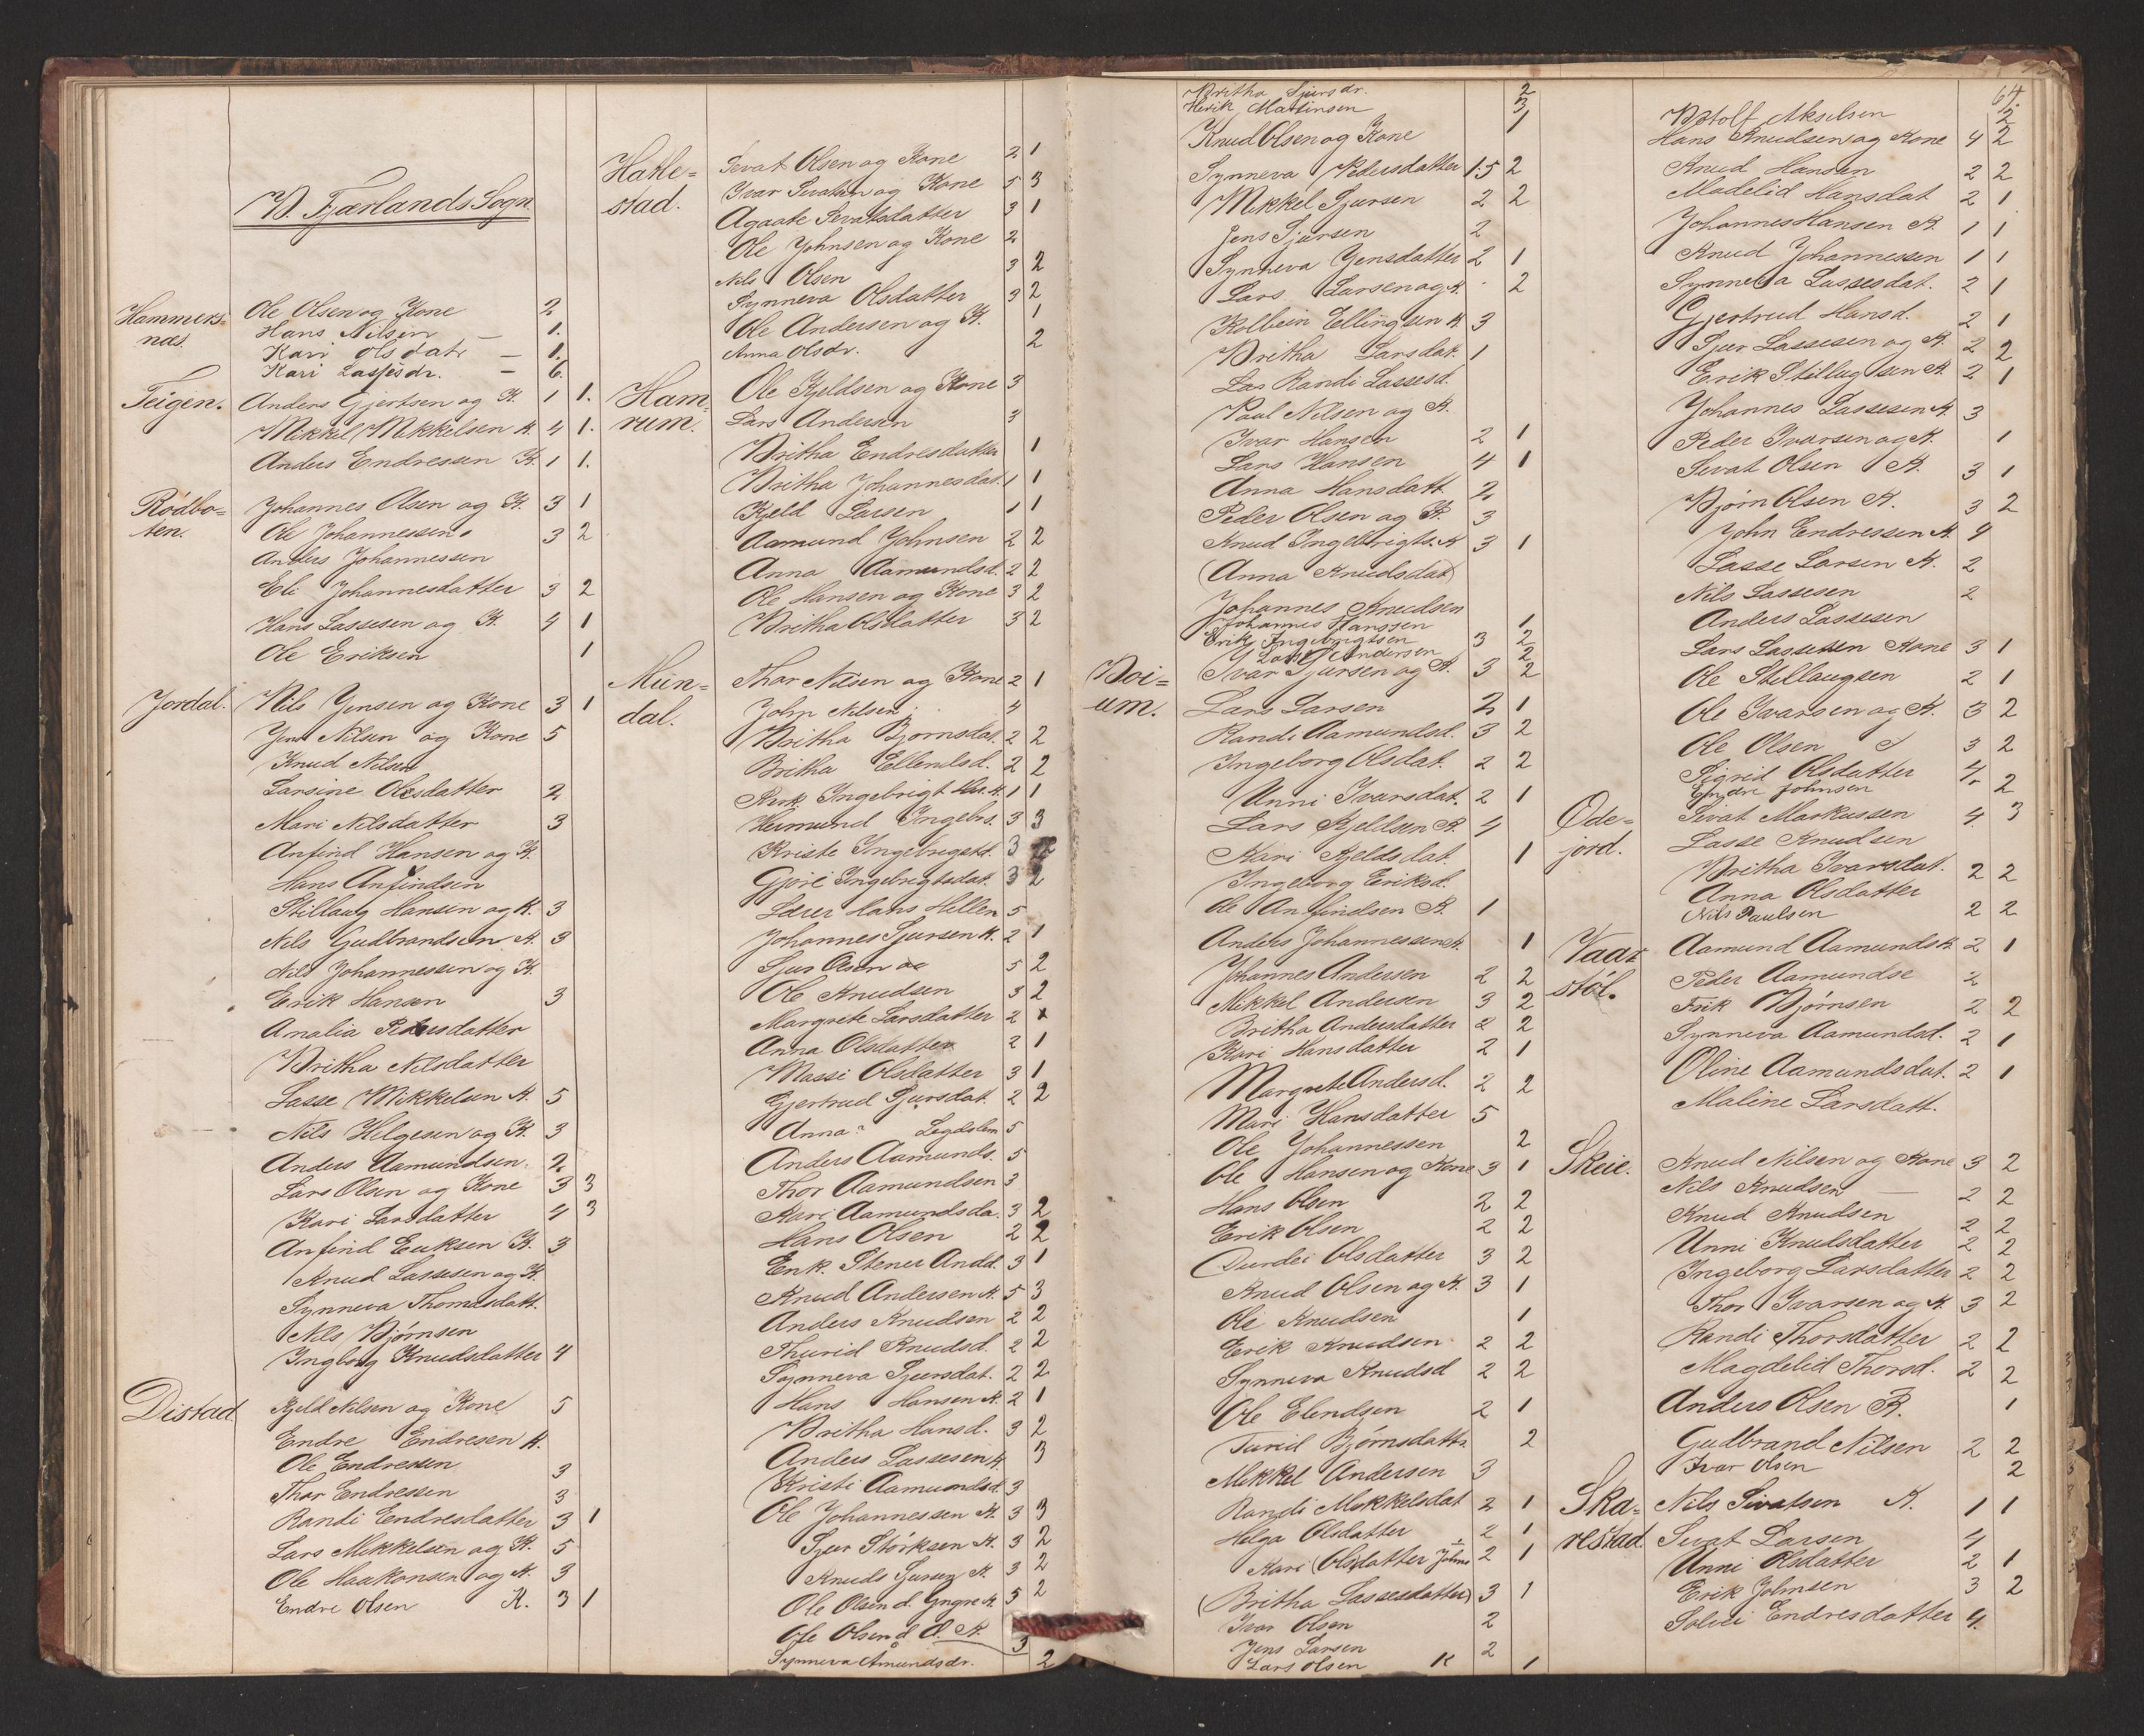 V. Fjærlands Sogn
Hammers-
næs.
Ole Olsen og Kone 2
Hans Nilsen — 1.
Kari Olsdatr — 1.
Kari Lassesdr. — 6.
Teigen.
Anders Gjertsen og K. 1 1.
Mikkel Mikkelsen K. 4 1.
Anders Endressen K. 1 1.
Rødbo-
ten.
Johannes Olsen og K. 3 1
Ole Johannessen. 3 2
Anders Johannessen
Eli Johannesdatter 3 2
Hans Lassesen og K. 4 1
Ole Eriksen 1
Jordal.
Nils Jensen og Kone 3 1
Jens Nilsen og Kone 5
Knud Nilsen
Larsine Olesdatter 2
Mari Nilsdatter 3
Anfind Hansen og K.
Hans Anfindsen
Stillaug Hansen og K. 3
Nils Gudbrandsen K. 3
Nils Johannessen og K.
Erik Hansen 3
Amalia Pedersdatter
Britha Nilsdatter
Lasse Mikkelsen K. 5
Nils Helgesen og K. 3
Anders Aamundsen. 2.
Lars Olsen og Kone 3 3
Kari Larsdatter 4 3
Anfind Eriksen K. 3
Knud Lassesen og K.
Synneva Thomasdatt.
Nils Bjørnsen
Ingborg Knudsdatter 4
Distad
Kjeld Nilsen og Kone 5
Endre Endresen K.
Ole Endressen 3
Thor Endressen 3
Randi Endresdatter 3 1
Lars Mikkelsen og K. 5
Ole Haakonsen og K. 3
Endre Olsen K. 3 1
Hatle-
stad.
Sevat Olsen og Kone 2 1
Ivar Sevatsen og Kone 5 3
Agaate Sevatsdatter 3 1
Ole Johnsen og Kone 2
Nils Olsen 3 2
Synneva Olsdatter 3 2
Ole Andersen og K. 1
Anna Olsdr. 2
Ham-
rum.
Ole Kjeldsen og Kone 3
Lars Andersen 3
Britha Endresdatter 1
Britha Johannesdat. 1 1
Kjeld Larsen 1 1
Aamund Johnsen 2 2
Anna Aamundsd. 2 2
Ole Hansen og Kone 3 2
Britha Olsdatter 3 2
Mun-
dal.
Thor Nilsen og Kone 2 1
John Nilsen 4
Britha Bjornsdat. 2 2
Britha Ellendsd. 2 2
Ingebrigt 1 1
Hermund Ingebr. 3 3
Kriste Ingebrigtsd. 3
Gjøri Ingebrigtsdat. 3 2
Lærer Hans Hellen 5
Johannes Sjursen K. 2 1
Sjur Olsen 5 2
Ole Knudsen 3 2
Margrete Larsdatter 2 1
Anna Olsdatter 2 1
Massi Olsdatter 3 1
Gjertrud Sjursdat. 2 2
Anna? Legdslem 5
Anders Aamunds. 5
Thor Aamundsen 3
Kari Aamundsda. 3 2
Hans Olsen 2 2
Enk. Stener Andd. 3 1
Knud Andersen K. 5 3
Anders Knudsen 2 2
Thurid Knudsd. 2 2
Synneva Sjursdat. 2 2
Hans Hansen K. 2 1
Britha Hansd. 3 2
Anders Lassesen K 3
Kristi Aamundsd. 3
Ole Johannessen K. 3 3
Sjur Størksen K. 3 2
Knuds Sjursen K. 3 2
Ole Olsen d. Yngre K 5 2
Ole Olsen d. Æ. K. 3
Synneva Amundsdr. 2
Britha Sjursdr. 2
Henrik Martinsen 3
Knud Olsen og Kone 1
Synneva Pedersdatter 1.5 2
Mikkel Sjursen 2 2
Jens Sjursen 2
Synneva Jensdatter 2 1
Lars Larsen og K. 2
Kolbein Ellingsen K. 3
Britha Larsdat. 1
Las Randi Lassesd.
Paul Nilsen og K.
Ivar Hansen 2 1
Lars Hansen 4 1
Anna Hansdatt. 2
Peder Olsen og K. 3
Knud Ingebrigts. K 3 1
(Anna Knudsdat)
Johannes Knudsen
Johannes Hanssen 1
Erik Ingebrigtsen 3 2
Lars Andersen 2
Boi-
um.
Ivar Sjursen og K. 3 2
Lars Larsen 2 1
Randi Aamundsd. 3 2
Ingeborg Olsdat. 2 2
Unni Ivarsdat. 2 1
Lars Kjeldsen K. 4
Kari Kjeldsdat. 1
Ingeborg Eriksd.
Ole Anfindsen K. 1
Anders Johannessen K. 1
Johannes Andersen 2 2
Mikkel Andersen 3 2
Britha Andersdatter 2 2
Kari Hansdatter 2 1
Margrete Andersd. 2 2
Mari Hansdatter 5
Ole Johannessen 2
Ole Hansen og Kone 3 1
Hans Olsen 2 2
Erik Olsen 2 2
Durdei Olsdatter 3 2
Knud Olsen og K. 3 1
Ole Knudsen 1
Erik Knudsen 2 2
Synneva Knudsd 2 2
Ole Elendsen 2 1
Turid Bjørnsdatter 2
Mikkel Andersen 3
Randi Mikkelsdat 2 1
Helga Olsdatter 2 1
Kari Olsdatter Johns 2 1
(Britha Lassesdatter) 3 1
Ivar Olsen 2
Jens Larsen 2
Lars Olsen K 1
64.
Botolf Akselsen 2
Hans Knudsen og Kone 4 2
Knud Hansen 2 2
Madelid Hansdat 2 1
Johannes Hansen K. 1 1
Knud Johannessen 1 1
Synneva Lassesdat. 2 1
Gjertrud Hansd. 2 1
Sjur Lassesen og K. 2 2
Erik Stillugsen K. 2 1
Johannes Lassesen K. 3
Peder Ivarsen og K. 1
Sevat Olsen K. 3 1
Bjørn Olsen K. 3 2
John Endressen K. 4
Lasse Larsen K. 2
Nils Lassesen 2
Anders Lassesen
Lars Lassesen Kone 3 1
Ole Stillaugsen 2 1
Ole Ivarsen og K. 3 2
Ole Olsen 3 2
Sigrid Olsdatter 4.
Endre Johnsen 2
Øde-
jord.
Sivat Markussen 4. 3
Lasse Knudsen
Britha Ivarsdat. 2 2
Anna Olsdatter
Nils Paulsen 2 2
Vaar
støl.
Aamund Aamunds K. 2 1
Peder Aamundse 2
Erik Bjørnsen 2 2
Synneva Aamundsd. 2 1
Oline Aamundsdat. 2 1
Maline Larsdatt.
Skeie.
Knud Nilsen og Kone 3 2
Nils Knudsen — 2 2
Knud Knudsen 2 2
Unni Knudsdatter 2 2
Ingeborg Larsdatter 2 2
Thor Ivarsen og K. 3 2
Randi Thorsdatter 2 2
Magdelid Thorsd. 2 2
Anders Olsen K. 1
Gudbrand Nilsen 2 2
Ivar Olsen 2
Ska-
restad
Nils Sivatsen K. 1 1
Sivat Larsen 4
Unni Olsdatter 2 1
Erik Johnsen 3 2
Solvei Endresdatter 4.